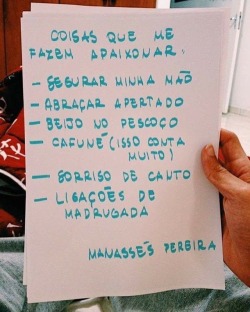 COISAS QUE ME
FAZEM APAIXONAR:
- SEGURAR MINHA MÃO
- ABRAÇAR APERTADO
- BEIJO NO PESCOÇO
- CAFUNÉ (ISSO CONTA
MUITO)
- SORRISO DE CANTO
- LIGAÇÕES DE
MADRUGADA
MANASSÉS PEREIRA